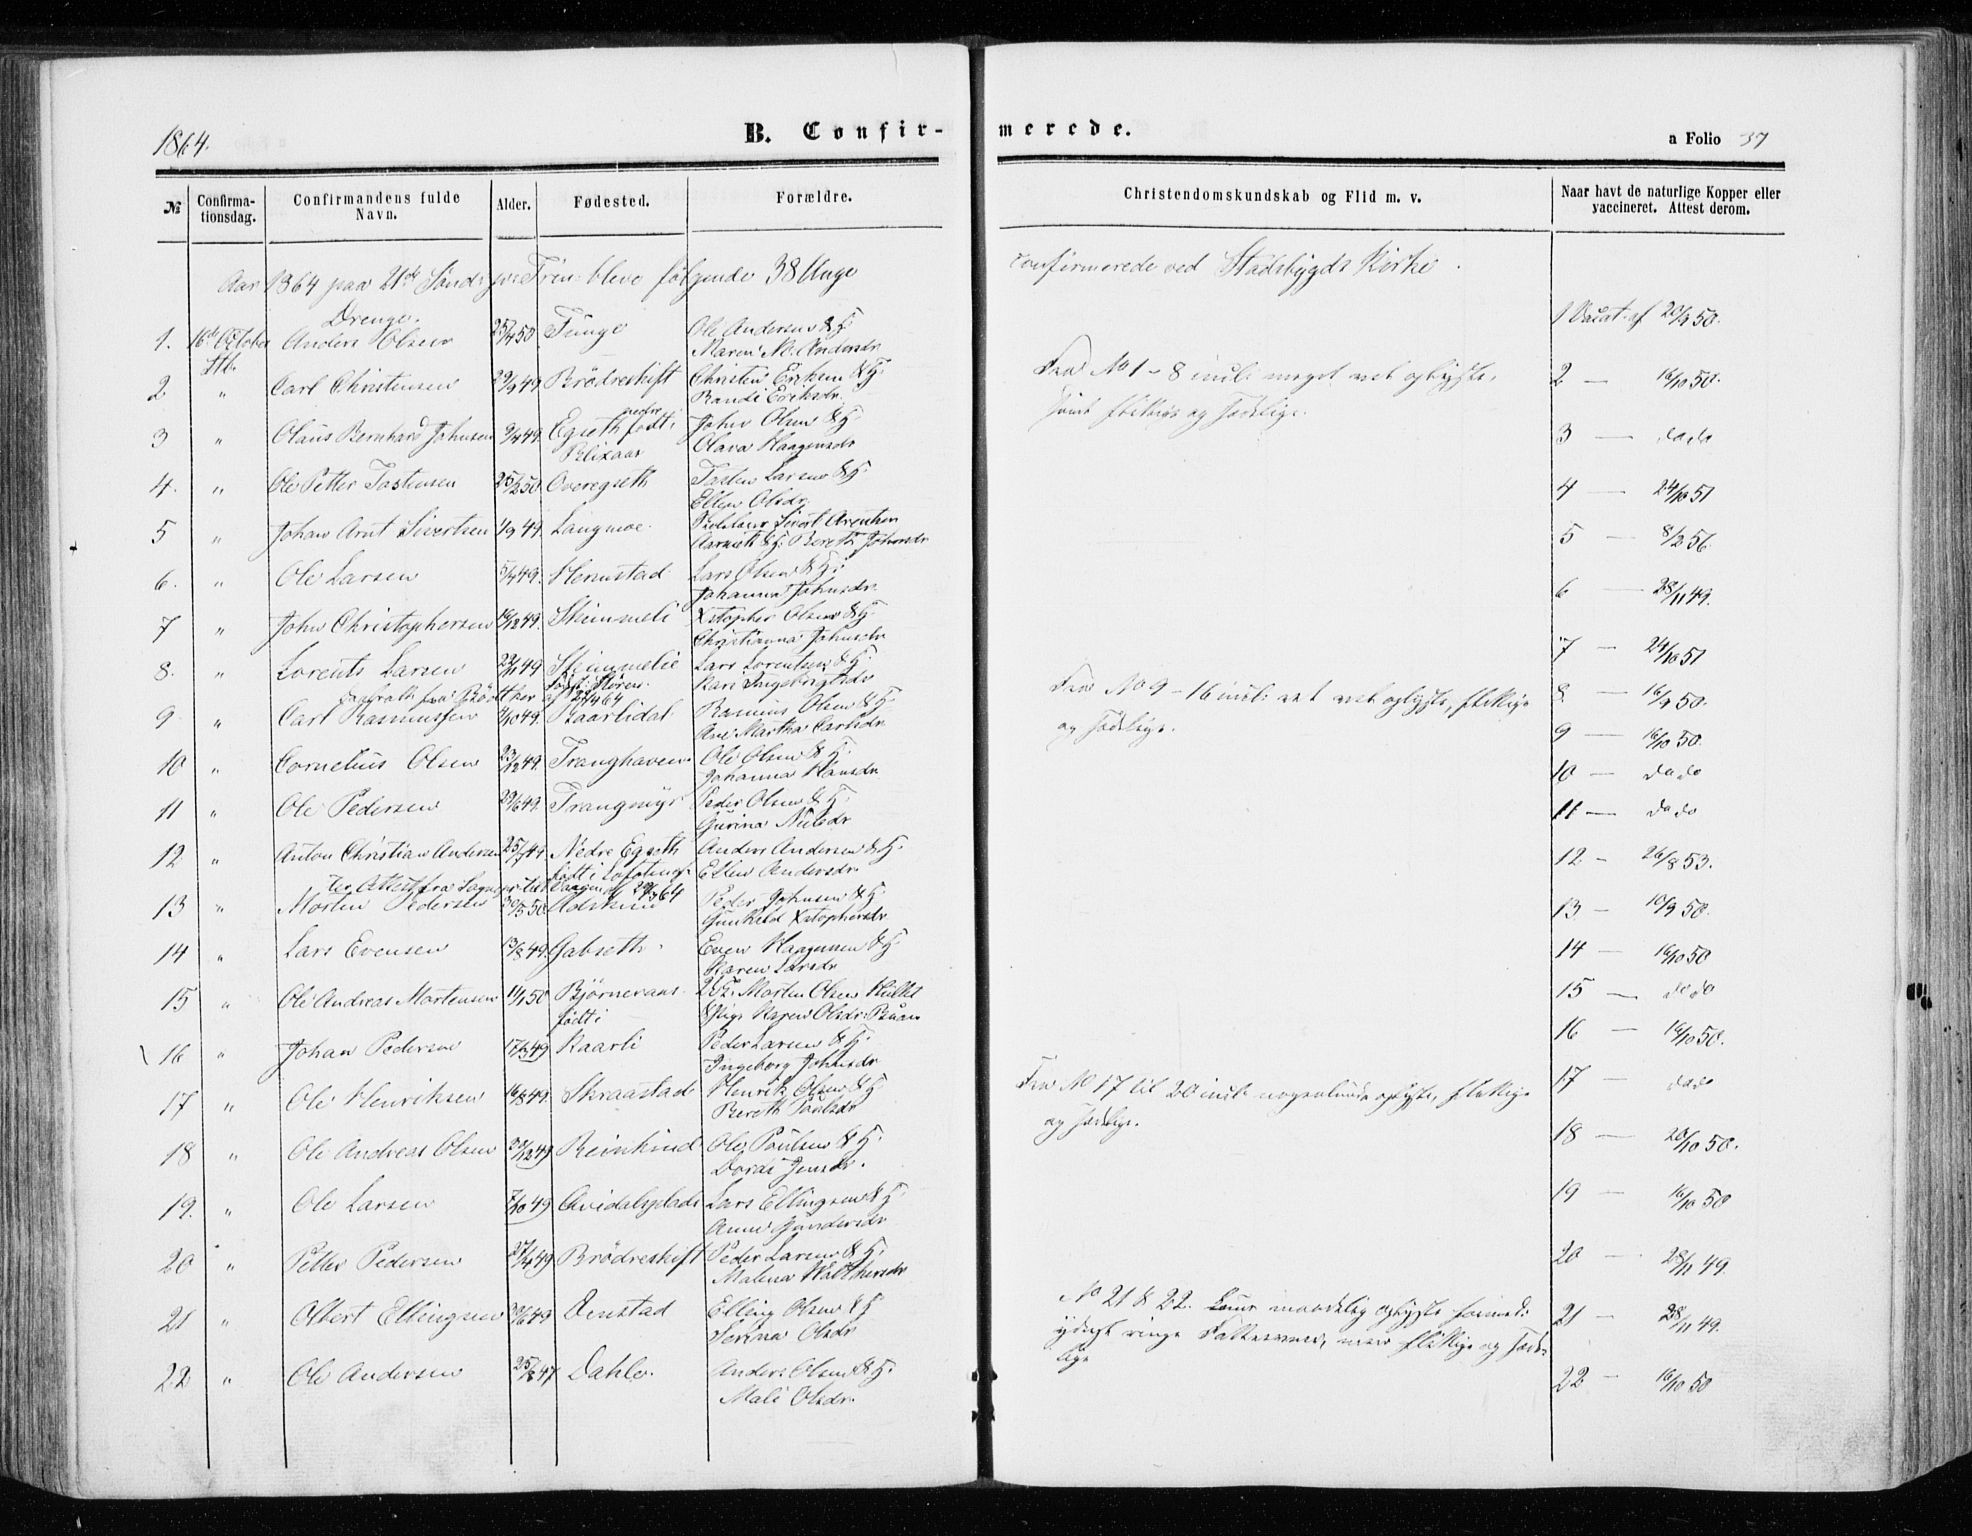 1864.
B. Confir-
merede.
a Folio 37
№
Confirma-
tionsdag.
Confirmandens fulde
Navn.
Alder.
Fødested.
Forældre.
Christendomskundskab og Flid m. v.
Naar havt de naturlige Kopper eller
vaccineret. Attest derom.
Aar 1864 paa 21de Sönd: p: Trin: bleve følgende 38 Unge confirmerede ved Stadsbygds Kirke.
Drenge.
1. 16de October Anders Olsen 25/4 50 Tunge Ole Andersen & H: 1 Vacat. af 20/9 50.
Maren M. Andersdr
2 " Carl Christensen 29/9 49 Brödreskift Christen Eriksen & H: 2 — 16/10 50.
Randi Eriksdr.
Fra No 1 - 8 incl: meget vel oplyste,
samt flittige og sædelige.
3 " Olaus Bernhard Johnsen 9/4 49. Egseth nedre født i John Olsen & H: 3 — do do
Blixaas Olava Haagensdr
4. " Ole Petter Tostensen 25/2 50 Overegseth Tosten Larsen & H: 4 — 24/10 51
Ellen Olsdr.
5 " Johan Arnt Sivertsen 1/9 49 Langmoe. Sivert Arentsen 5 — 8/2 56.
& H: Bereth Johnsdr
6. " Ole Larsen 5/7 49. Hermstad Lars Olsen & H: 6 — 28/11 49.
Johanna Johnsdr.
7 " John Christophersen 16/12 49. Skimmeli Xstopher Olsen & H: 7 — 24/10 51
Christianna Johnsdr
8. " Lorents Larsen 22/11 49 Skimmelie Lars Lorentsen & H: 8 — 16/9 50.
Kari Ingebrigtsdr
født i Støren
Fra No 9 - 16 incl: vel oplyste, flittige
og sædelige.
9 " Carl Rasmussen 4/10 49. Kaarlidal Rasmus Olsen & H: 9 — 16/10 50.
Ane Martha Carlsdr
10 " Cornelius Olsen 23/12 49. Tranghaven Ole Olsen & H: 10 — do do
Johanna Hansdr
11 " Ole Pedersen 29/6 49. Trangmyr Peder Olsen & H: 11 — do do
Gurina Nilsdr
12 " Anton Christian Andersen 25/7 49. Nedre Egseth Anders Andersen & H: 12 - 26/8 53.
født i Lofoten Ellen Andersdr.
13 " Morten Pedersen 30/5 50. Peder Johnsen & H: 13 — 10/9 50.
Gunhild Xstophersdr
14 " Lars Evensen 13/8 49. Gabseth. Even Haagensen & H: 14 — 16/10 50
Karen Larsdr
15 " Ole Andreas Mortensen 11/1 50 Björnerans. Morten Olsen 15 — do do
født i Pige Karen Olsdr:
16 " Johan Pedersen 17/3 49 Kaarli Peder Larsen & H: 16 — 16/10 50.
Ingeborg Johnsdr
17 " Ole Henriksen 16/8 49. Skraastad Henrik Olsen & H: 17 — do do
Bereth Paulsdr
Fra No 17 til 20 incl: nogenlunde oplyste, flittige
og sædelige.
18 " Ole Andreas Olsen 30/12 49 Reinkind Ole Paulsen & H: 18 — 20/10 50.
Jensdr.
19. " Ole Larsen 7/10 49 Lars Ellingsen & H: 19 — 16/10 50
Anne Gundersdr
20 " Petter Pedersen 27/4 49 Brödreskift Peder Larsen & H: 20 — 28/11 49.
Malena Walthersdr
No 21 & 22. maadelig oplyste formedelst
yderst ringe Fatteevner, men flittige og sæde-
lige
21 " Albert Ellingsen 30/6 49 Denstad Elling Olsen & H: 21 — 28/11 49.
Serina Olsdr
22 " Ole Andersen 25/8 47 Dahle. Anders Olsen & H: 22 — 16/10 50
Mali Olsdr.